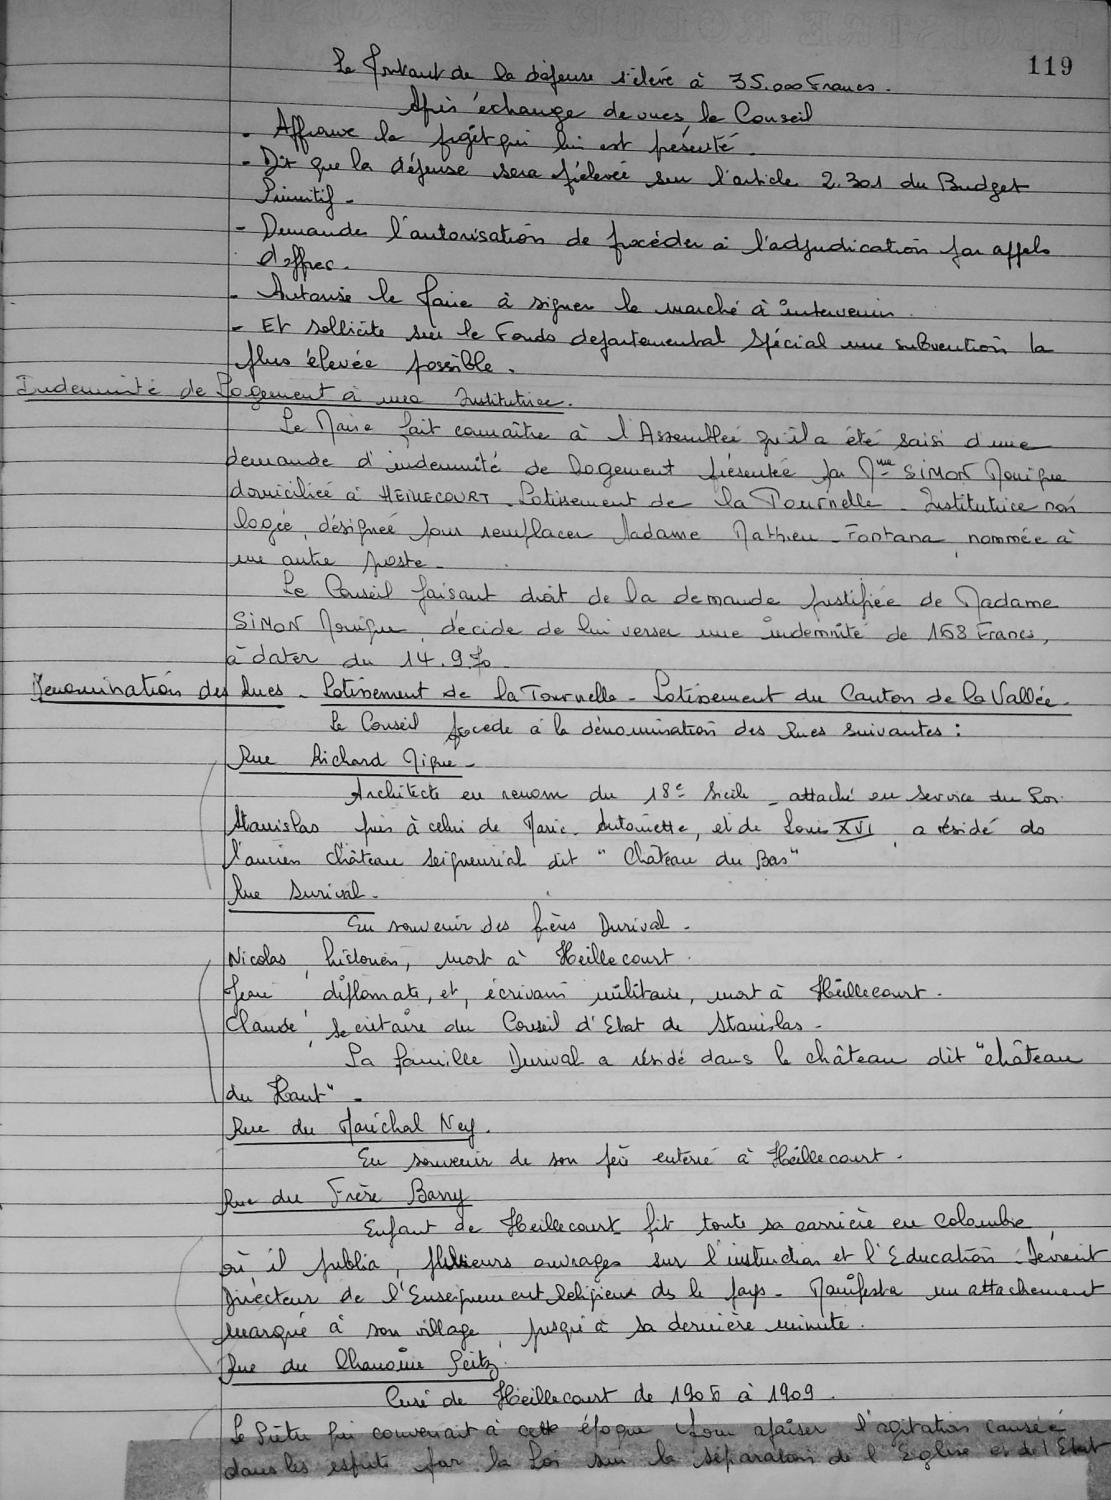 119
Le Montant de la dépense s'élève à 35.000 Francs.
Après échange de vues le Conseil
- Approuve le projet qui lui est présenté.
- Dit que la dépense sera prélevée sur l'article 2.301 du Budget
Primitif -
- Demande l'autorisation de procéder à l'adjudication par appels
d'offres.
- Autorise le Maire à signer le marché à intervenir.
- Et sollicite sur le Fonds départemental Spécial une subvention la
plus élevée possible.
Indemnité de Logement à une Institutrice.
Le Maire fait connaître à l'Assemblée qu'il a été saisi d'une
demande d'indemnité de logement présentée par Mme SIMON Monique
domiciliée à HEILLECOURT - Lotissement de la Tournelle - Institutrice non
logée, désignée pour remplacer Madame Mathieu - Fontana, nommée à
une autre poste -
Le Conseil faisant droit de la demande justifiée de Madame
SIMON Monique, décide de lui verser une indemnité de 168 Francs,
à dater du 14.9.70
Dénomination des Rues - Lotissement de la Tournelle - Lotissement du Canton de la Vallée.
Le Conseil procède à la dénomination des Rues suivantes :
Rue Richard Mique -
Architecte en renom du 18e Siècle - attaché au Service du Roi
Stanislas puis à celui de Marie-Antoinette, et de Louis XVI, a résidé ds
l'ancien château Seigneurial dit "Château du Bas"
Rue Durival -
En souvenir des frères Durival -
Nicolas, historien, mort à Heillecourt.
Jean, diplomate, et, écrivain militaire, mort à Heillecourt.
Claude, secrétaire du Conseil d'Etat de Stanislas -
La famille Durival a résidé dans le château dit "château
du Haut" -
Rue du Maréchal Ney.
En souvenir de son père enterré à Heillecourt.
Rue du Frère Barry
Enfant de Heillecourt fit toute sa carrière en Colombie
où il publia, plusieurs ouvrages sur l'instruction et l'Education. Devint
Directeur de l'Enseignement Religieux ds le pays - Manifesta un attachement
marqué à son village, jusqu'à sa dernière minute.
Rue du Chanoine Seitz.
Curé de Heillecourt de 1905 à 1909.
Le Prêtre qui convenait à cette époque pour apaiser l'agitation causée
dans les esprits par la Loi sur la séparation de l'Eglise et de l'Etat